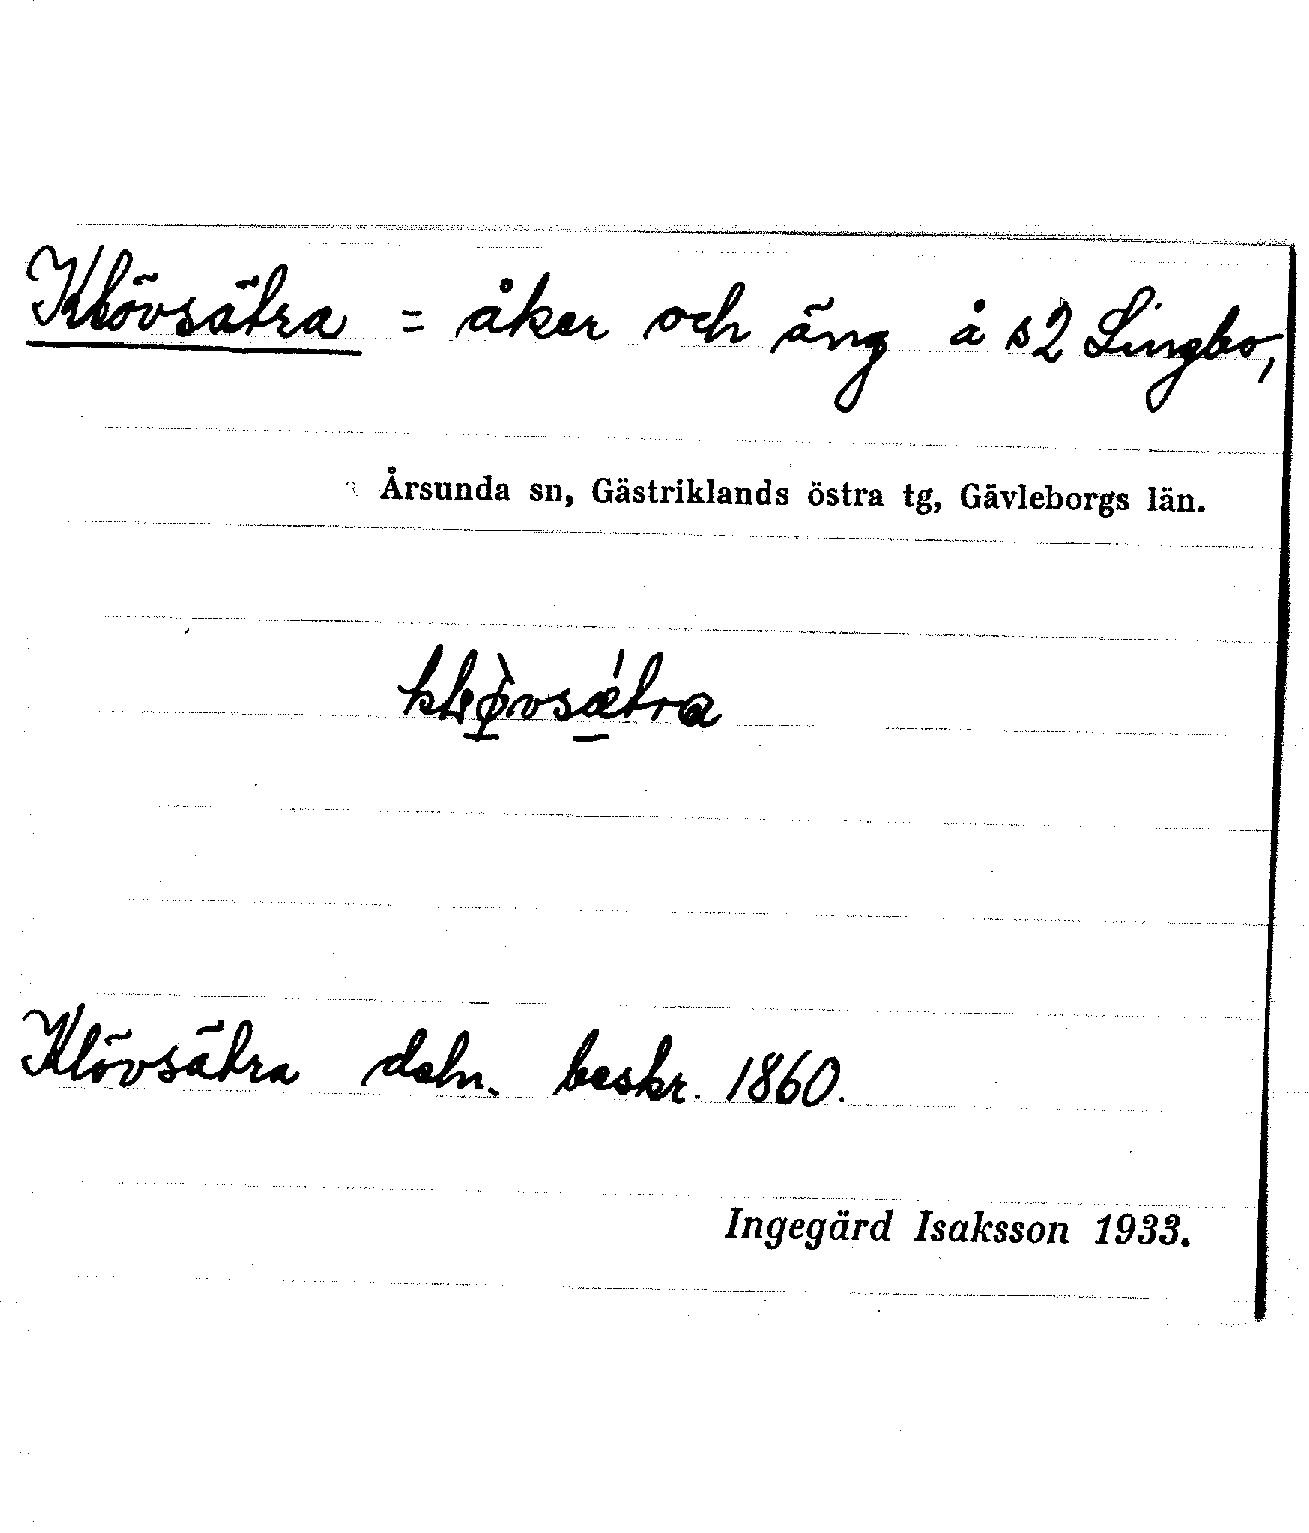 Klövsätra = åker och äng å s2 Lingbo,
Årsunda sn, Gästriklands östra tg, Gävleborgs län.
klø̀vsǽtra
Klövsätra deln. beskr. 1860.
Ingegärd Isaksson 1933.